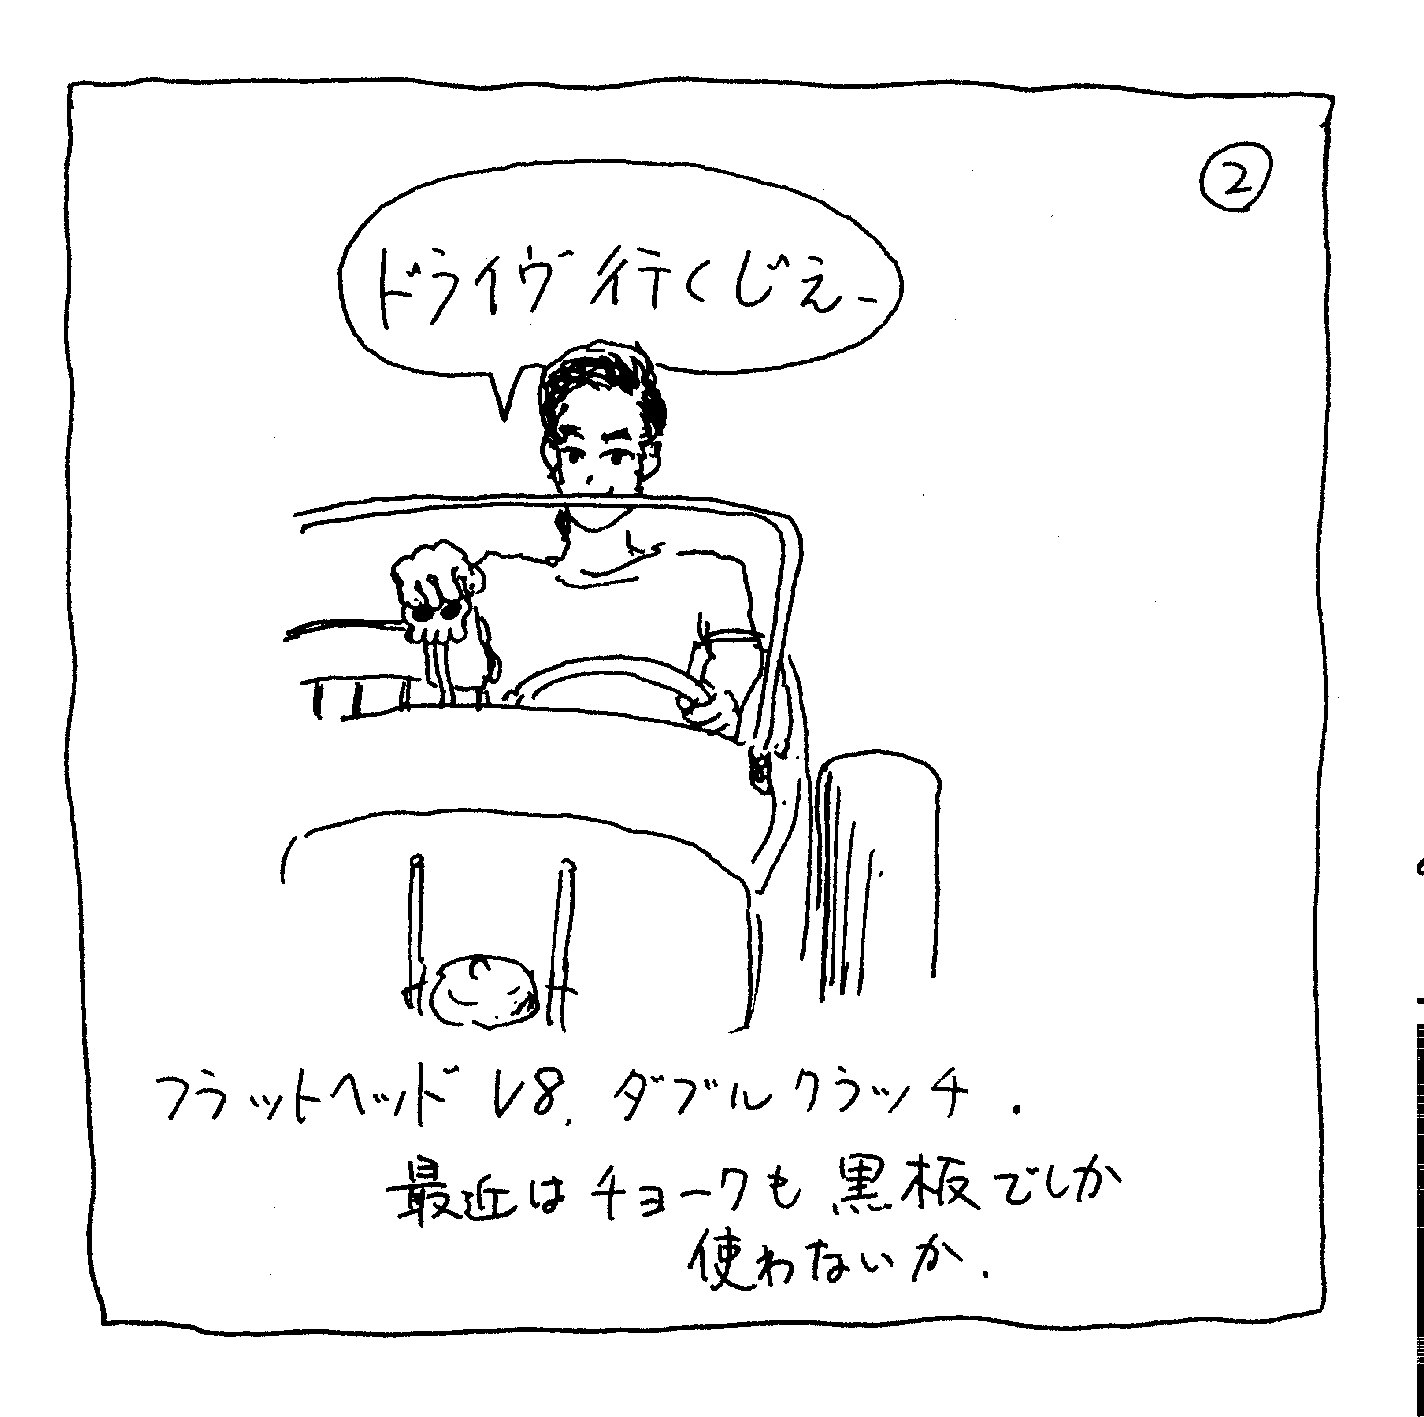 ②
ドライヴ行くじぇ-
フラットヘッド V8. ダブルクラッチ.
最近はチョークも黒板でしか
使わないか.